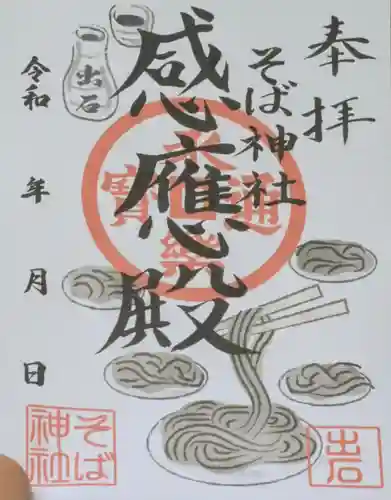 奉拝
そば神社
感應殿
令和 年 月 日
出石
永楽通寳
そば
神社
出石